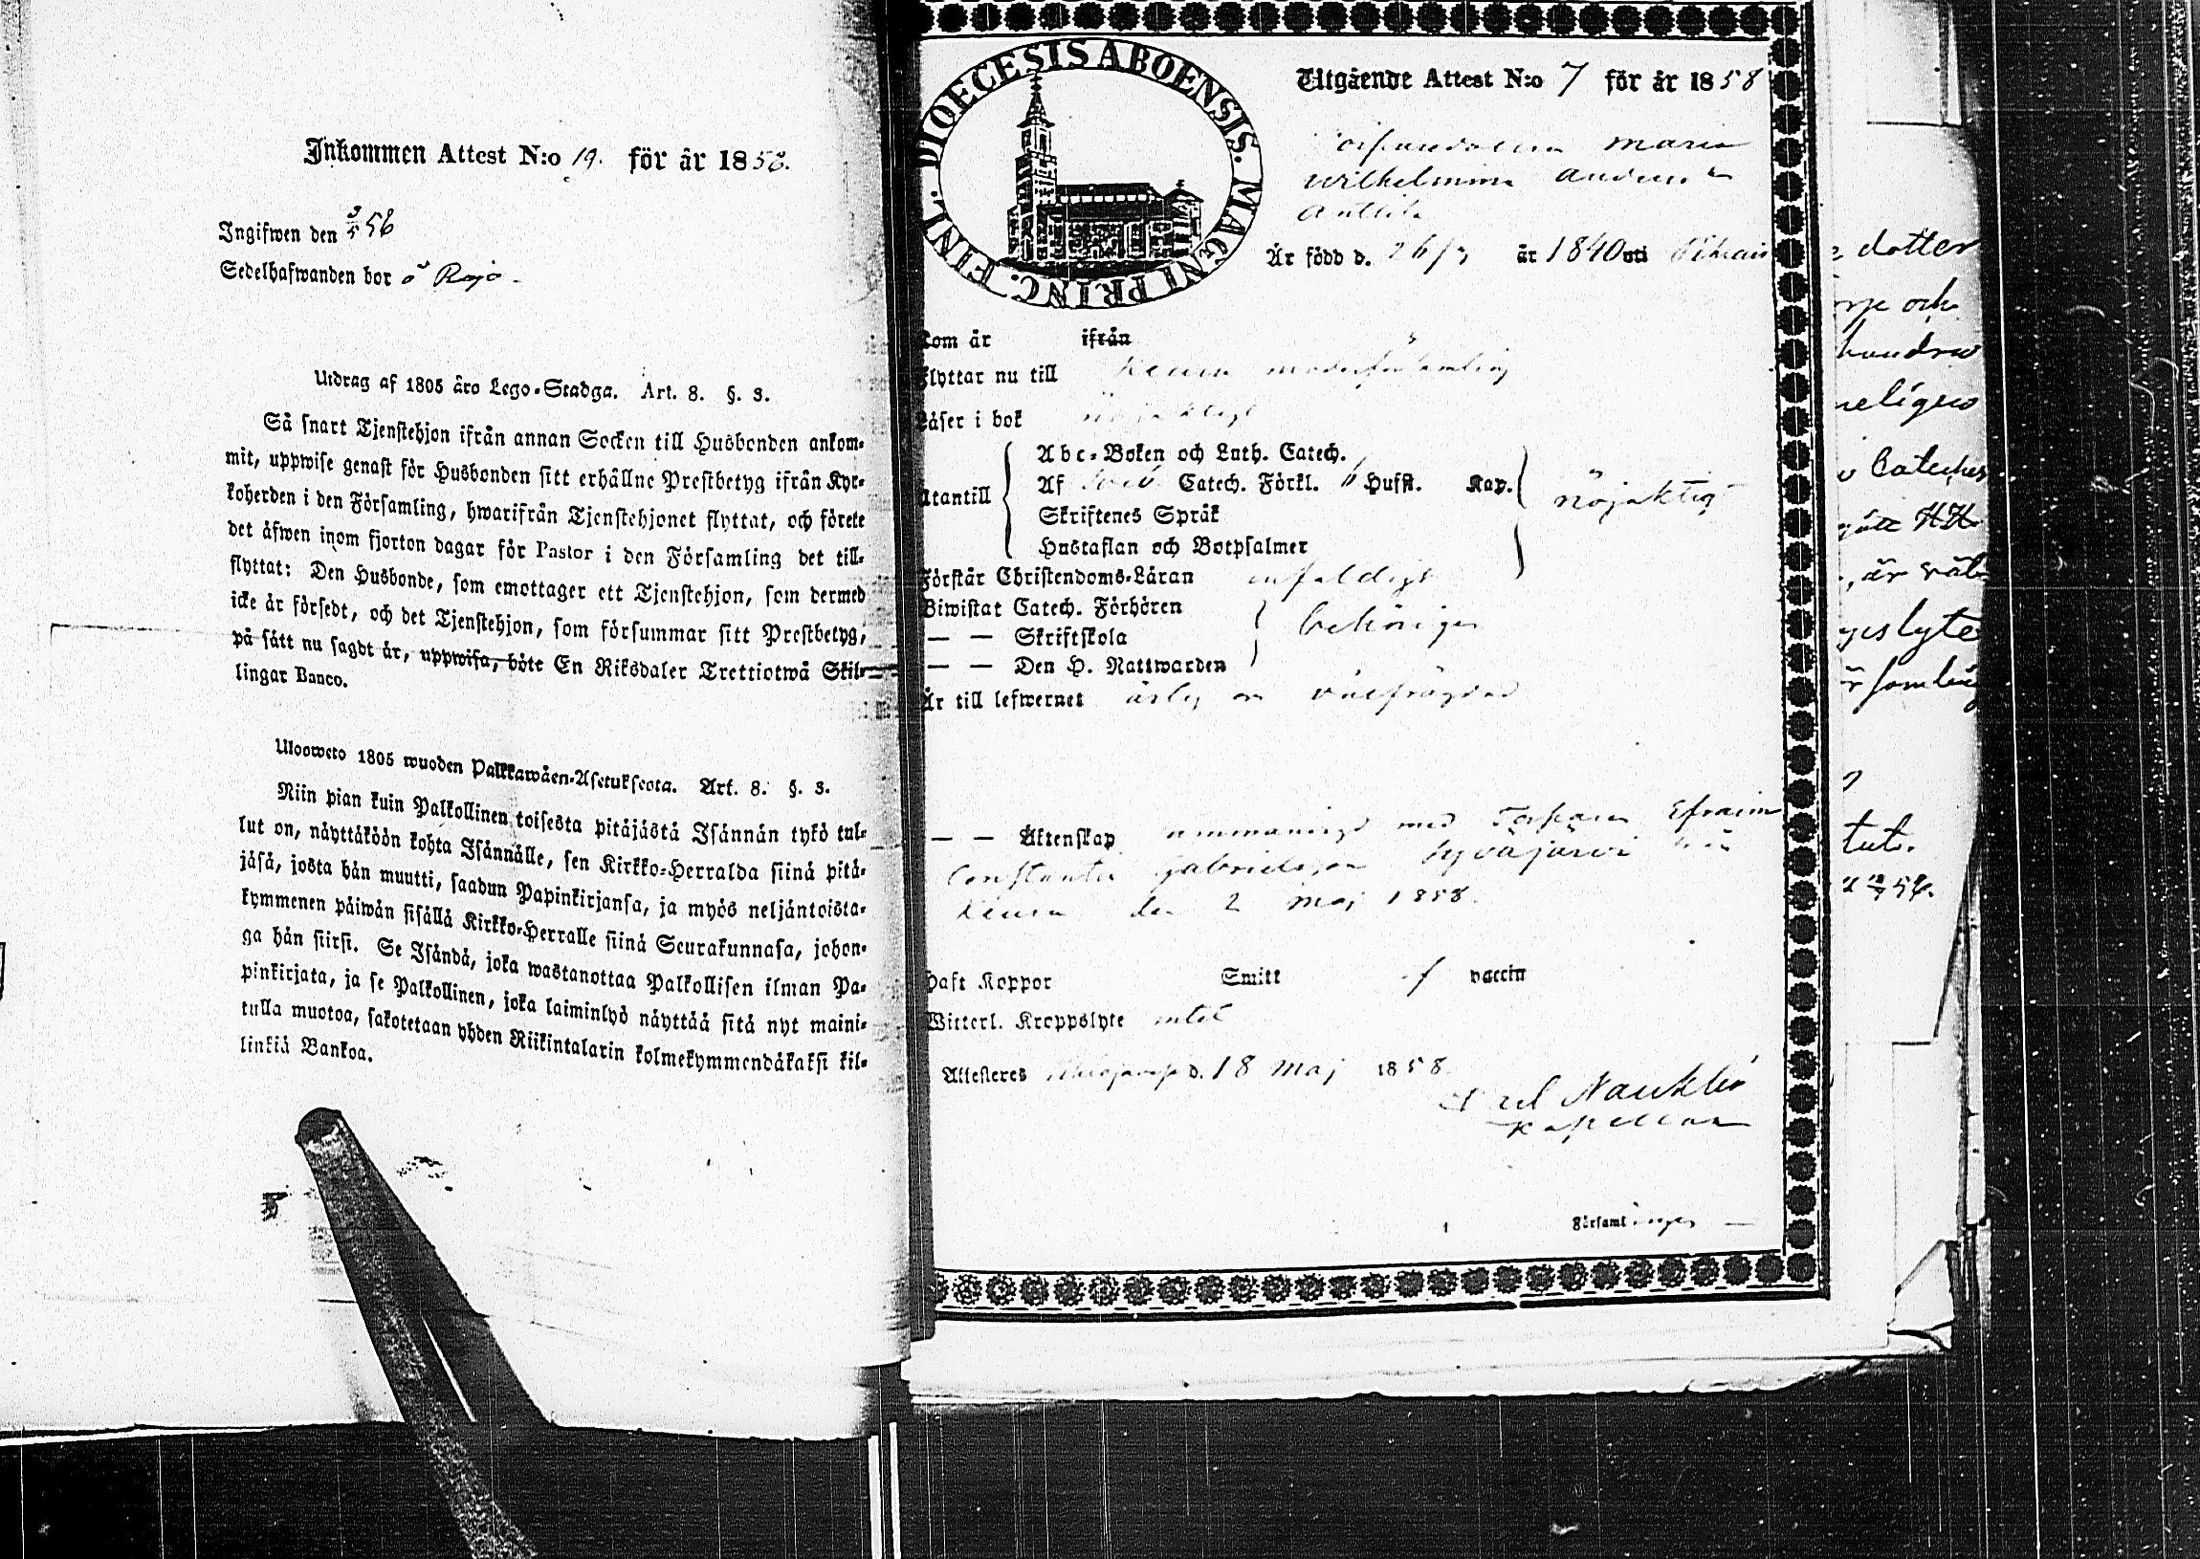 Inkommen Attest N:o 19. för år 1858.
Ingifwen den 3/5 56
Sedelhafwanden bor å Rajo -
Utdrag af 1805 års Lego-Stadga. Art. 8. §. 3.
Så snart Tjenstehjon ifrån annan Socken till Husbonden ankom-
mit, uppwise genast för Husbonden sitt erhållne Prestbetyg ifrån Kyr-
koherden i den Församling, hwarifrån Tjenstehjonet flyttat, och förete
det äfwen inom fjorton dagar för Pastor i den Församling det till-
flyttat: Den Husbonde, som emottager ett Tjenstehjon, som dermed
icke är försedt, och det Tjenstehjon, som försummar sitt Prestbetyg,
på sätt nu sagdt är, uppwisa, böte En Riksdaler Trettiotwå Skil-
lingar Banco.
Ulosweto 1805 wuoden Palkkawäen-Asetuksesta. Art. 8. §. 3.
Niin pian kuin Palkollinen toisesta pitäjästä Isännän tykö tul-
lut on, näyttäköön kohta Isännälle, sen Kirkko-Herralda siinä pitä-
jäsä, josta hän muutti, saadun Papinkirjansa, ja myös neljäntoista-
kymmenen päiwän sisällä Kirkko-Herralle siinä Seurakunnasa, johon-
ga hän siirsi. Se Isändä, joka wastanottaa Palkollisen ilman Pa-
pinkirjata, ja se Palkollinen, joka laiminlyö näyttää sitä nyt maini-
tulla muotoa, sakotetaan yhden Riikintalarin kolmekymmendäkaksi kil-
linkiä Bankoa.
DIOECESIS ABOENSIS. MAGNI PRINC. FINL.
Utgående Attest N:o 7 för år 1858
Maria
Wilhelmina
Är född d. 26/3 år 1840 uti
Kom år ifrån
Flyttar nu till Keuru moderförsamling
Läser i bok nöjaktigt
Utantill
Abc-Boken och Luth. Catech.
Af Catech. Förkl. Hufst. Kap.
Skriftenes Språk
Hustaflan och Botpsalmer
nöjaktigt
Förstår Christendoms-Läran enfaldigt
Biwistat Catech. Förhören
— — Skriftskola
— — Den H. Nattwarden
behörigen
Är till lefwernet ärlig och välfrägdad
— — Äktenskap med Torparen Efraim
Constantin Gabrielsson Syväjärvi från
Keuru den 2 Maj 1858.
Haft Koppor Smitt / vaccin
Witterl. Kroppslyte intet
Attesteres d. 18 Maj 1858.
Karl Nauklér
Kapellan
Församlingen —
dotter
och
hundra
Cateches
är väl
lyte
församling